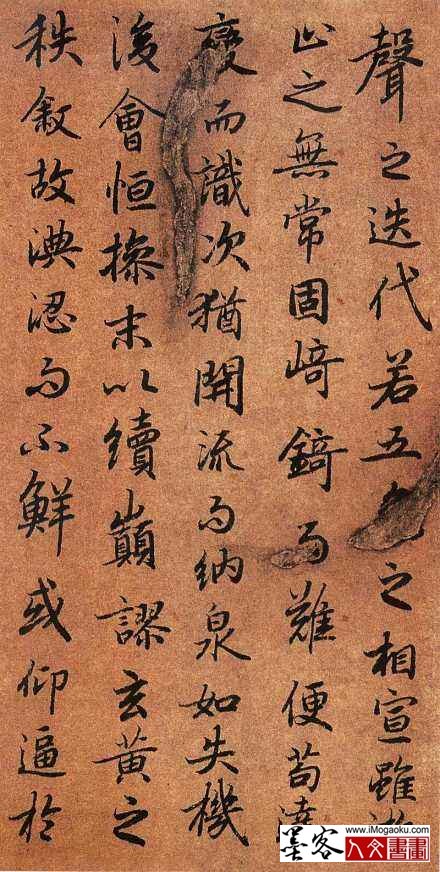 聲之迭代若五之相宣雖
止之無常固崎錡而難便苟
變而識次猶開流而納泉如失機
後會恒操末以續巔謬玄黃之
秩敘故淟涊而不鮮或仰逼於
墨客
www.iMogaoku.com
人文書畫